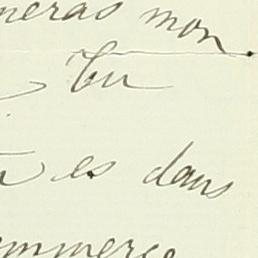 neras mon
Tu
es dans
ommerce